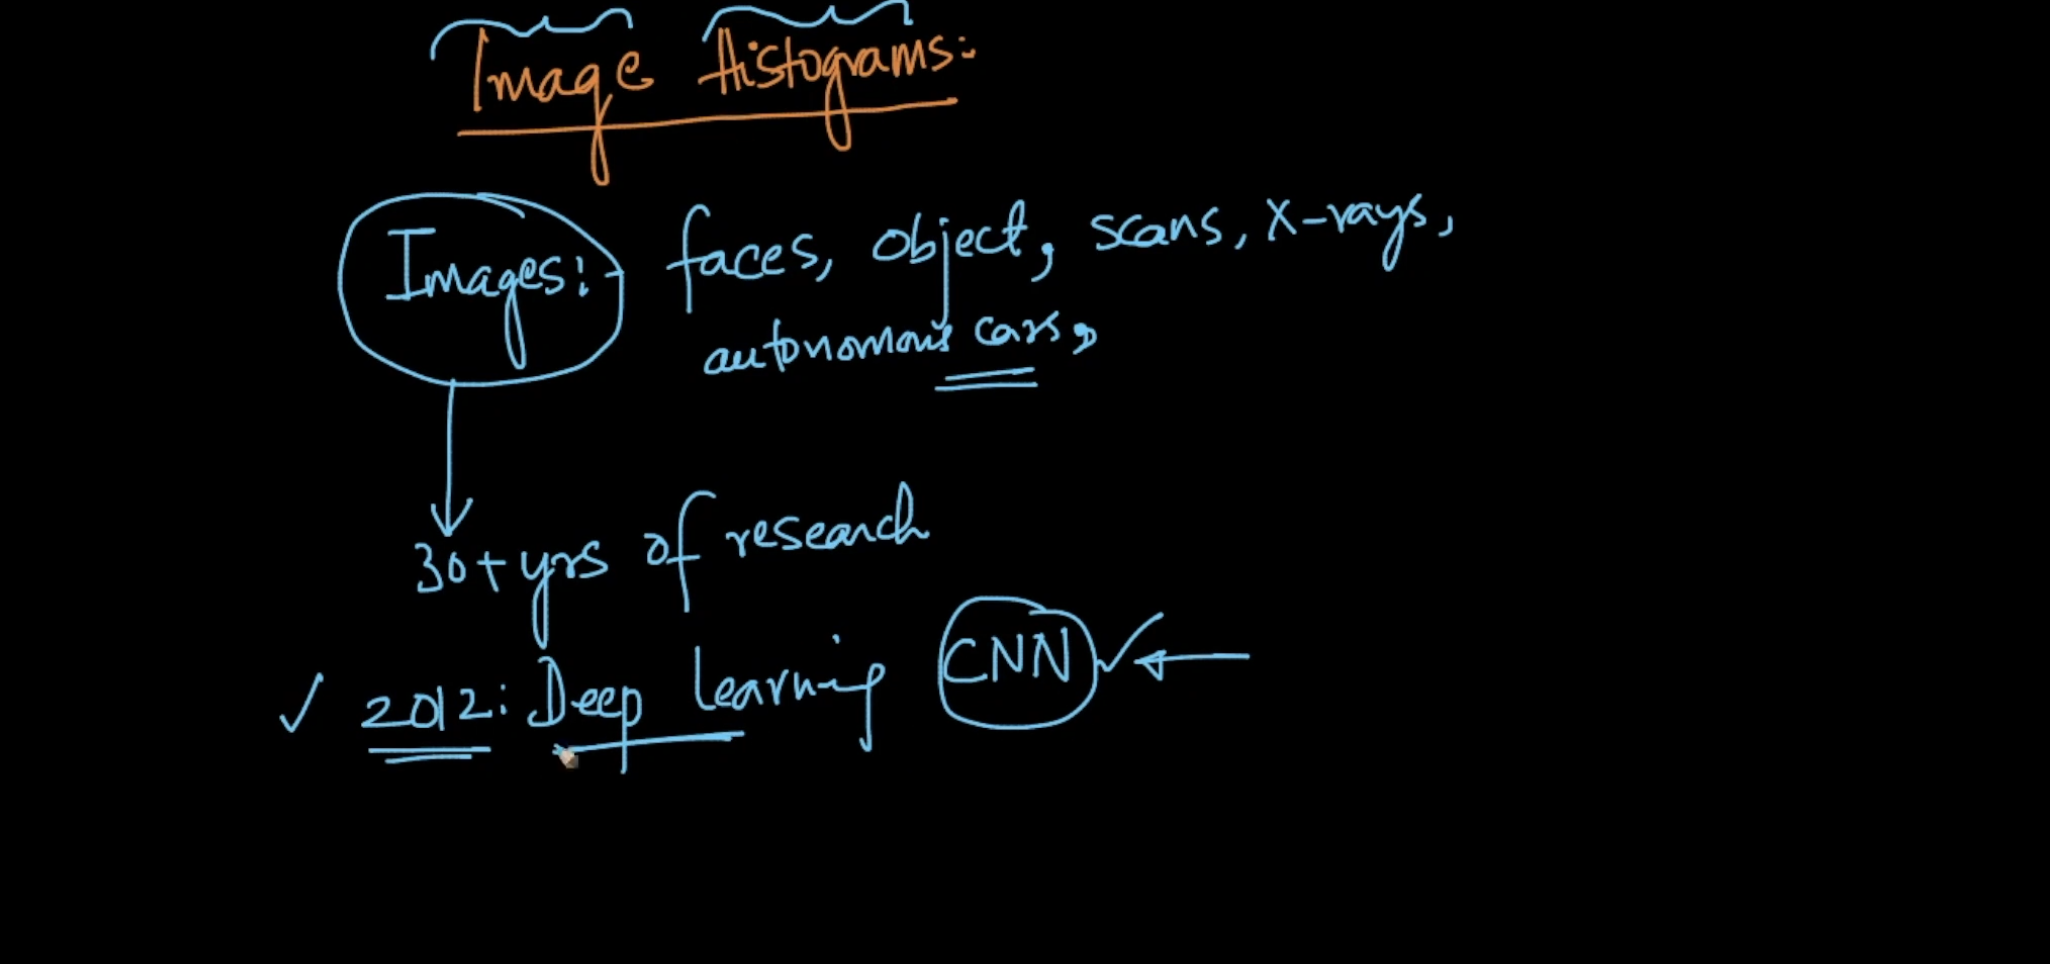 Image Histograms:
Images:- faces, object, scans, X-rays,
autonomous cars,
30+ yrs of research
2012: Deep learning CNN